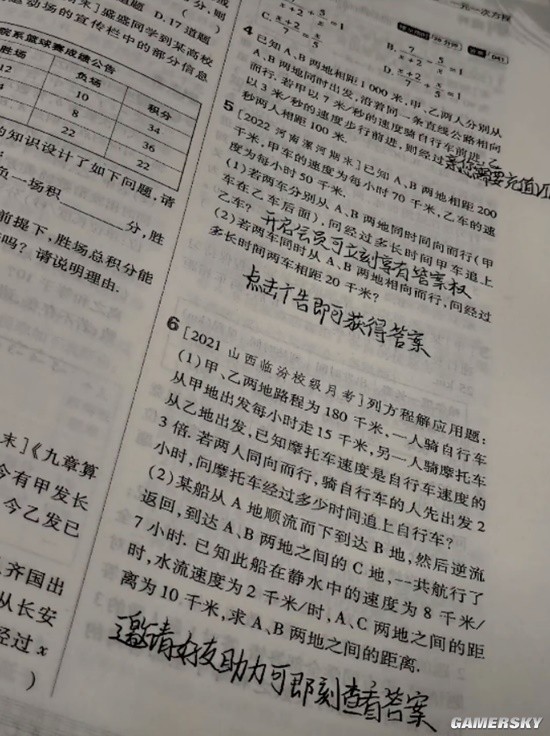 末]盛盛同学到某高校
D.17道题
运动场的宣传栏中的部分信息
院系篮球赛成绩公告
胜场 负场 积分
12 10 34
8 36
22 22
的知识设计了如下问题,请
负一场积 分,胜
前提下,胜场总积分能
吗?请说明理由.
末]《九章算
今有甲发长
今乙发已
齐国出
从长安
经过x
)
一元一次方程
x+2 5
C. x+2/7 - x/5 =1
B. 7/x+2 - 5/x =1
D. x+2/7 + x/5 =1
4 已知A、B两地相距1000米,甲、乙两人分别从
A、B两地同时出发,沿着同一条直线公路相向
而行.若甲以7米/秒的速度骑自行车前进,乙
以3米/秒的速度步行前进,则经过 亲您需要充值VI
秒两人相距100米.
5 [2022河南漯河期末]已知A、B两地相距200
千米,甲车的速度为每小时70千米,乙车的速
度为每小时50千米.
(1)若两车分别从A、B两地同时同向而行(甲
车在乙车后面),问经过多长时间甲车追上
乙车? 开启会员可立刻享有答案权
(2)若两车同时从A、B两地相向而行,问经过
多长时间两车相距20千米?
点击广告即可获得答案
6 [2021山西临汾校级月考]列方程解应用题:
(1)甲、乙两地路程为180千米,一人骑自行车
从甲地出发每小时走15千米,另一人骑摩托车
从乙地出发,已知摩托车速度是自行车速度的
3倍.若两人同向而行,骑自行车的人先出发2
小时,问摩托车经过多少时间追上自行车?
(2)某船从A地顺流而下到达B地,然后逆流
返回,到达A、B两地之间的C地,一共航行了
7小时.已知此船在静水中的速度为8千米/
时,水流速度为2千米/时,A、C两地之间的距
离为10千米,求A、B两地之间的距离.
邀请好友助力可即刻查看答案
GAMERSKY